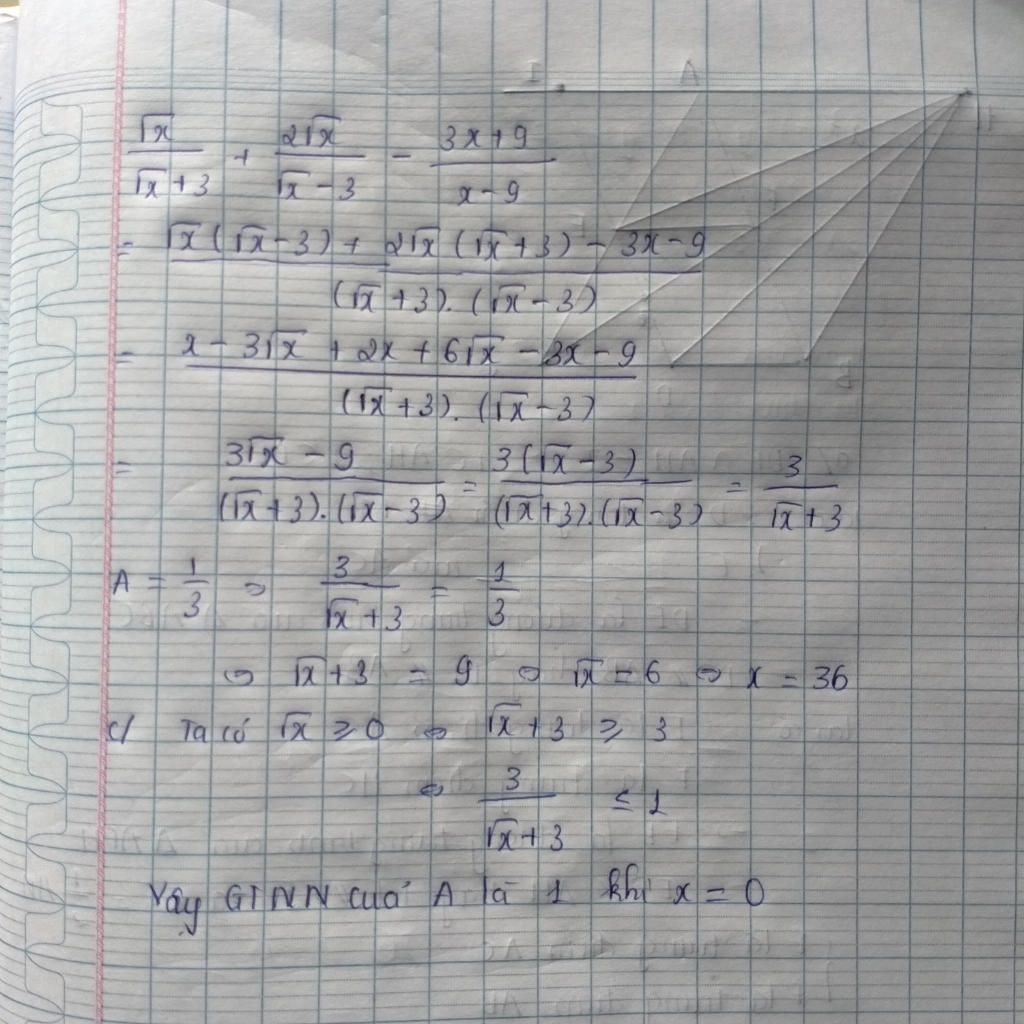 I A
√x/(√x+3) + 2√x/(√x-3) - (3x+9)/(x-9)
= (√x(√x-3) + 2√x(√x+3) - 3x-9)/((√x+3).(√x-3))
= (x - 3√x + 2x + 6√x - 3x - 9)/((√x+3).(√x-3))
= (3√x - 9)/((√x+3).(√x-3)) = 3(√x-3)/((√x+3).(√x-3)) = 3/(√x+3)
A = 1/3 ⇔ 3/(√x+3) = 1/3
⇔ √x+3 = 9 ⇔ √x = 6 ⇔ x = 36
c/ Ta có √x ≥ 0 ⇔ √x + 3 ≥ 3
⇔ 3/(√x+3) ≤ 1
Vậy GTNN cuả A là 1 khi x = 0